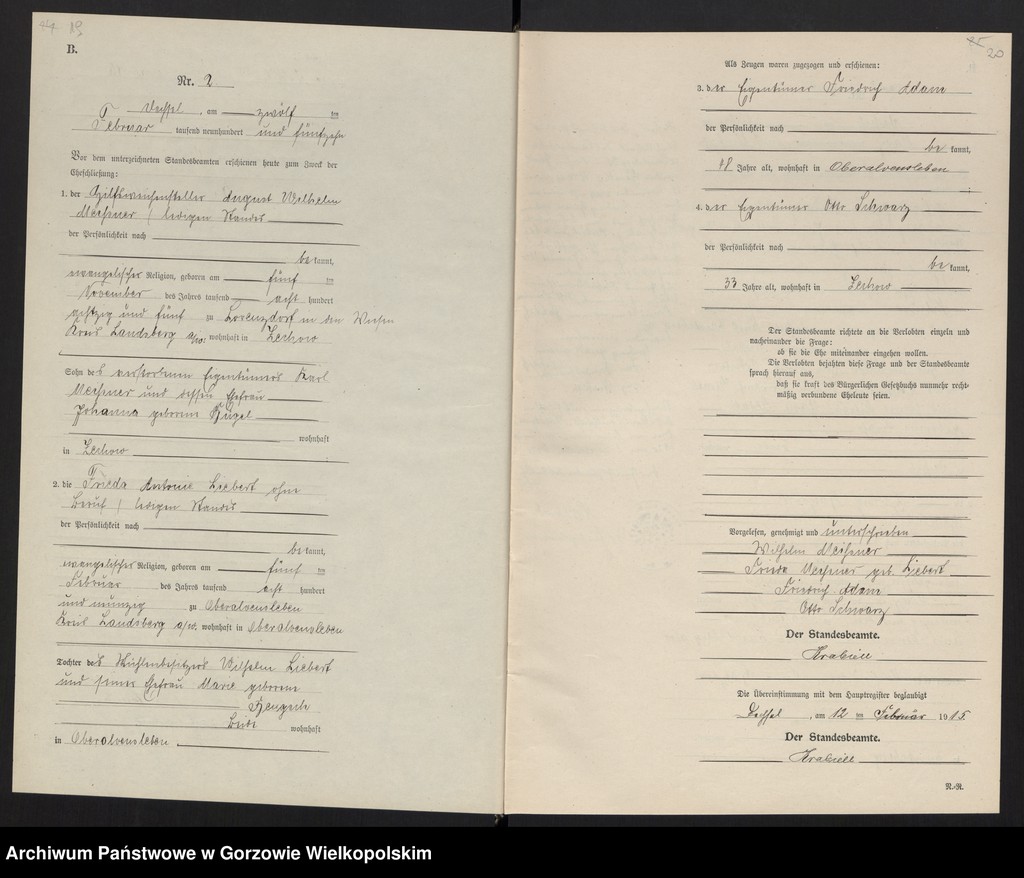 19
B.
Nr. 2
Dechsel, am zwölf ten
Februar tausend neunhundert und fünfzehn
Vor dem unterzeichneten Standesbeamten erschienen heute zum Zweck der
Eheschließung:
1. der Hilfsweichensteller August Wilhelm
Meißner, ledigen Standes
der Persönlichkeit nach
be kannt,
evangelischer Religion, geboren am fünf ten
November des Jahres tausend acht hundert
achtzig und fünf zu Lorenzdorf in den Wiesen
Kreis Landsberg a/W. wohnhaft in Zechow
Sohn des verstorbenen Eigentümers Karl
Meißner und dessen Ehefrau
Johanna geborene
wohnhaft
in Zechow
2. die Frieda Antonie Liebert ohne
Beruf, ledigen Standes
der Persönlichkeit nach
be kannt,
evangelischer Religion, geboren am fünf ten
Februar des Jahres tausend acht hundert
und neunzig zu Oberalvensleben
Kreis Landsberg a/W. wohnhaft in Oberalvensleben
Tochter des Mühlenbesitzers Wilhelm Liebert
und seiner Ehefrau Marie geborene
Beide wohnhaft
in Oberalvensleben
20
Als Zeugen waren zugezogen und erschienen:
3. der Eigentümer Friedrich Adam
der Persönlichkeit nach
be kannt,
48 Jahre alt, wohnhaft in Oberalvensleben
4. der Eigentümer Otto Schwarz
der Persönlichkeit nach
be kannt,
33 Jahre alt, wohnhaft in Zechow
Der Standesbeamte richtete an die Verlobten einzeln und
nacheinander die Frage:
ob sie die Ehe miteinander eingehen wollen.
Die Verlobten bejahten diese Frage und der Standesbeamte
sprach hierauf aus,
daß sie kraft des Bürgerlichen Gesetzbuchs nunmehr recht-
mäßig verbundene Eheleute seien.
Vorgelesen, genehmigt und unterschrieben
Wilhelm Meißner
Frieda Meißner geb. Liebert
Friedrich Adam
Otto Schwarz
Der Standesbeamte.
Die Übereinstimmung mit dem Hauptregister beglaubigt
Dechsel, am 12 ten Februar 1915.
Der Standesbeamte.
N.-R.
Archiwum Państwowe w Gorzowie Wielkopolskim